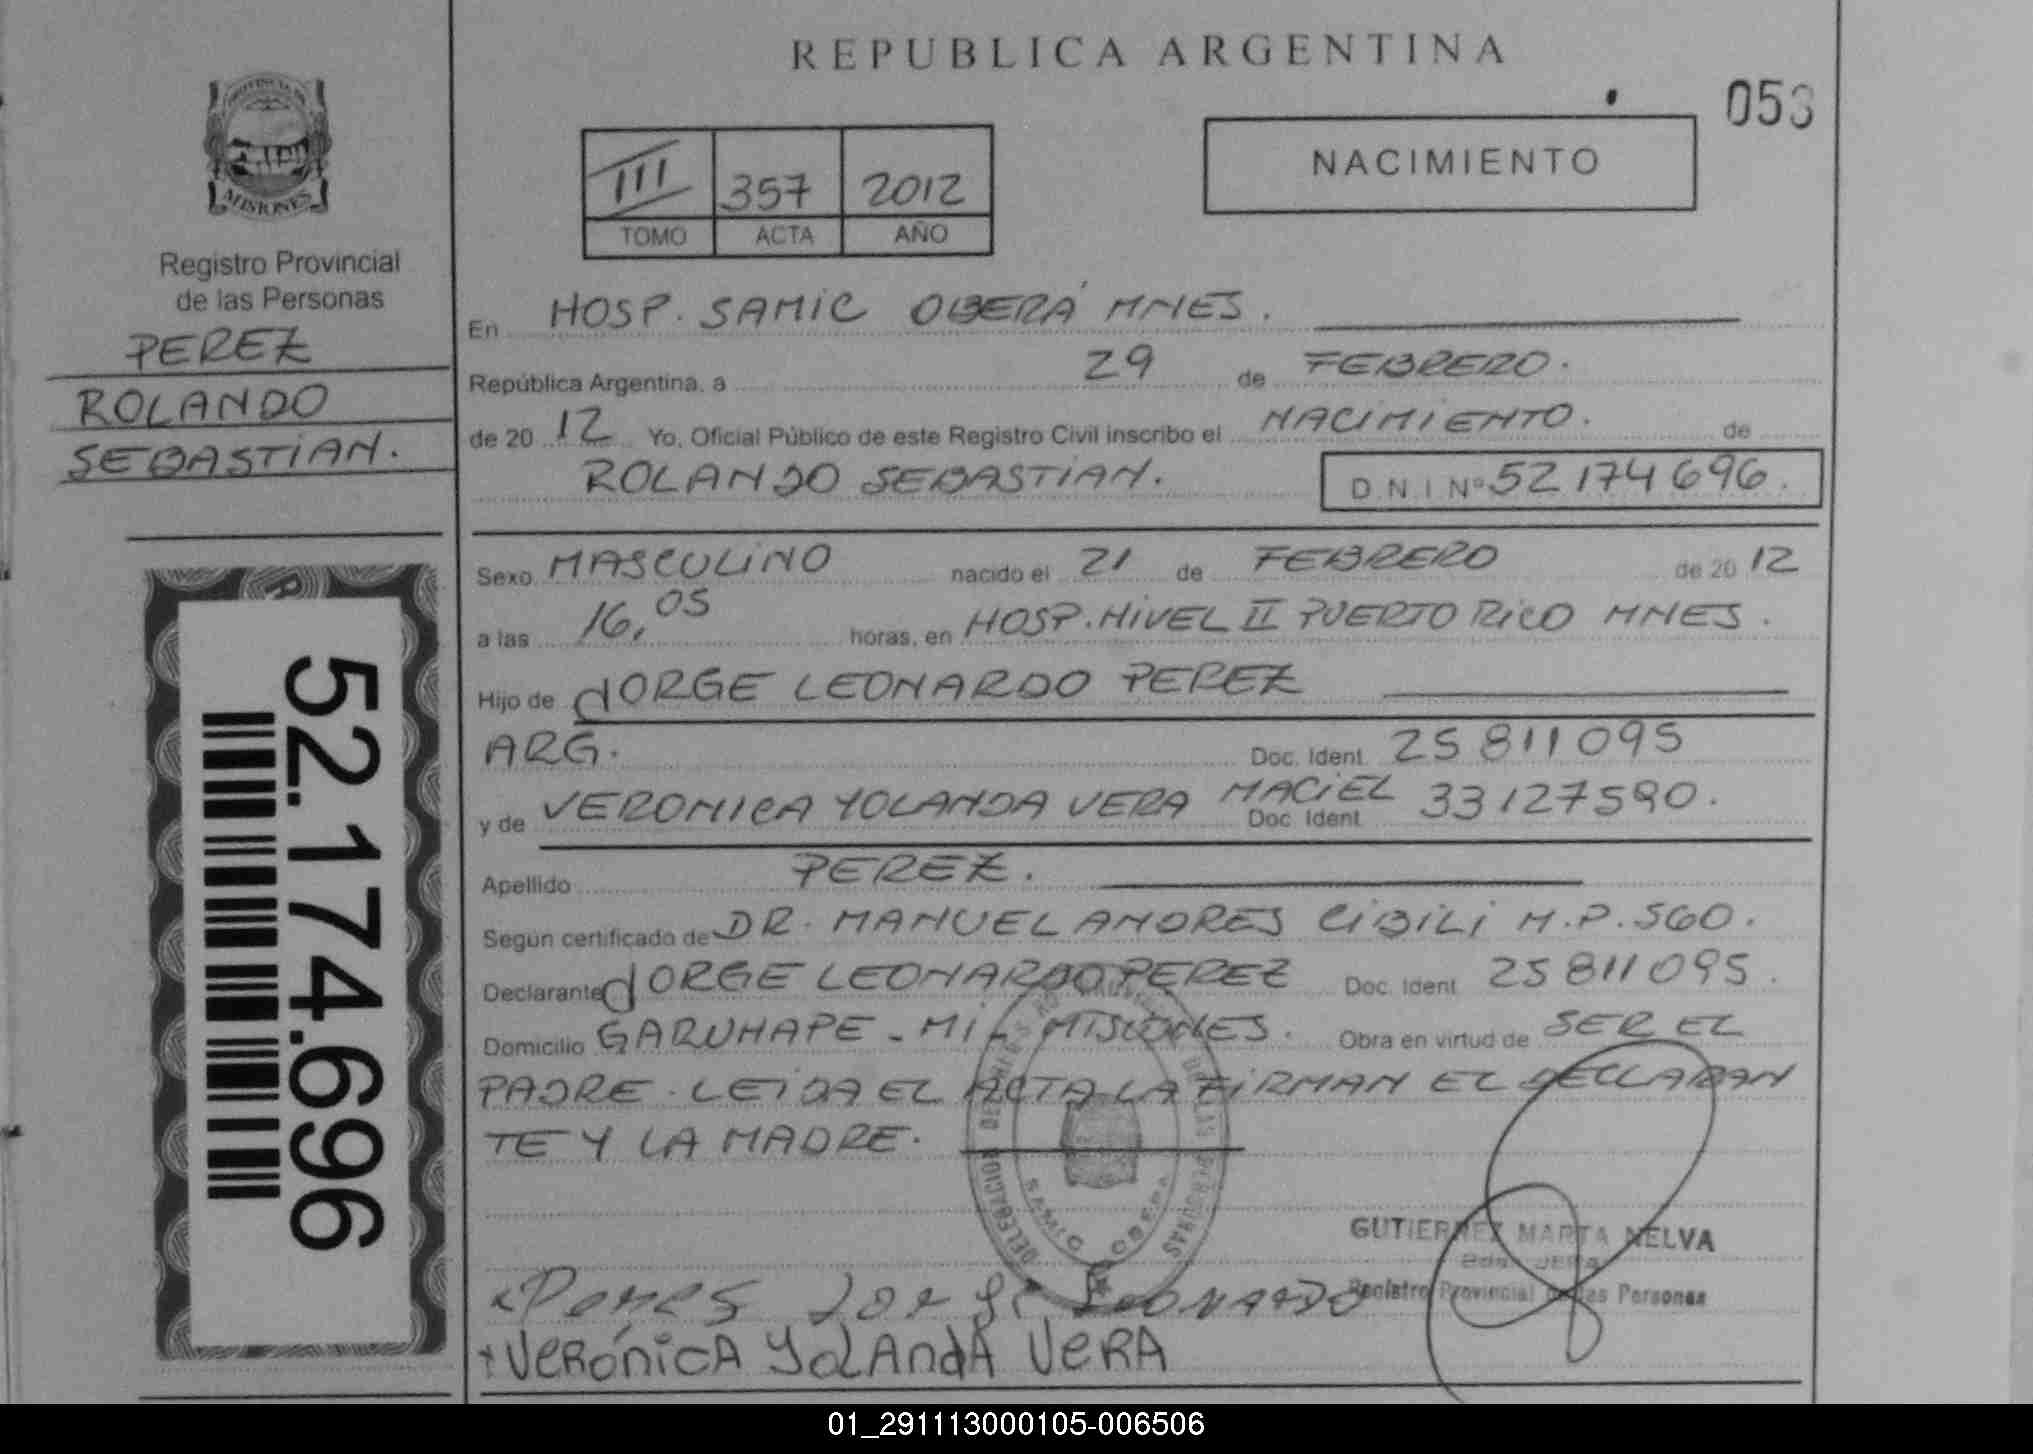 REPUBLICA ARGENTINA
053
PROVINCIA DE
MISIONES
Registro Provincial
de las Personas
PEREZ
ROLANDO
SEBASTIAN.
52.174.696
III 357 2012
TOMO ACTA AÑO
NACIMIENTO
En HOSP. SAMIC OBERÁ MNES.
República Argentina, a 29 de FEBRERO.
de 20 12 Yo, Oficial Público de este Registro Civil inscribo el NACIMIENTO. de
ROLANDO SEBASTIAN. D N I Nº 52 174 696.
Sexo MASCULINO nacido el 21 de FEBRERO de 20 12
a las 16,05 horas, en HOSP. NIVEL II PUERTO RICO MNES.
Hijo de JORGE LEONARDO PEREZ
ARG. Doc. Ident. 25 811 095
y de VERONICA YOLANDA VERA MACIEL Doc. Ident. 33 127 590.
Apellido PEREZ.
Según certificado de DR. MANUEL ANDRES CIBILI M.P. 560.
Declarante JORGE LEONARDO PEREZ Doc. Ident. 25 811 095.
Domicilio GARUHAPE - MI - MISIONES. Obra en virtud de SER EL
PADRE. LEIDA EL ACTA LA FIRMAN EL DECLARAN
TE Y LA MADRE.
DELEGACION
DE LAS PERSONAS
SAMIC OBERA
GUTIERREZ MARTA NELVA
Registro Provincial de las Personas
Peres Jorge LEONARDO
VERÓNICA YOLANDA VERA
01_291113000105-006506